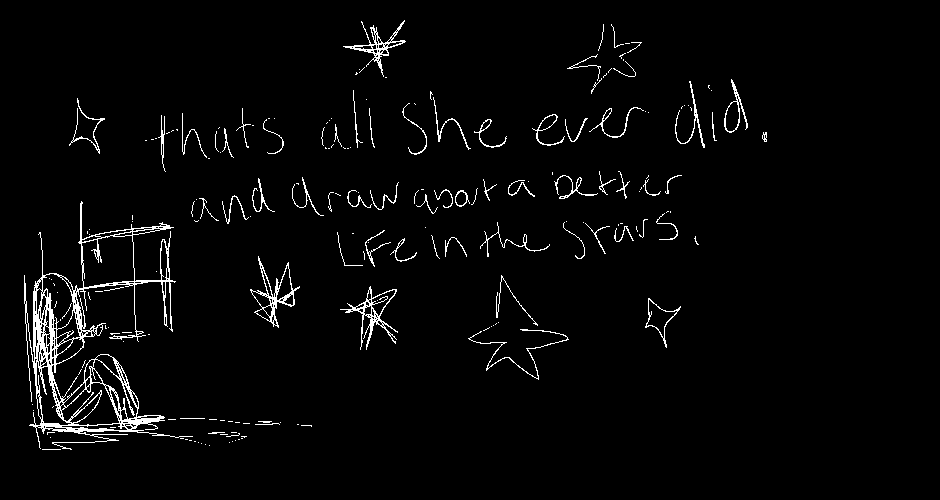 thats all she ever did.
and draw about a better
life in the stars.